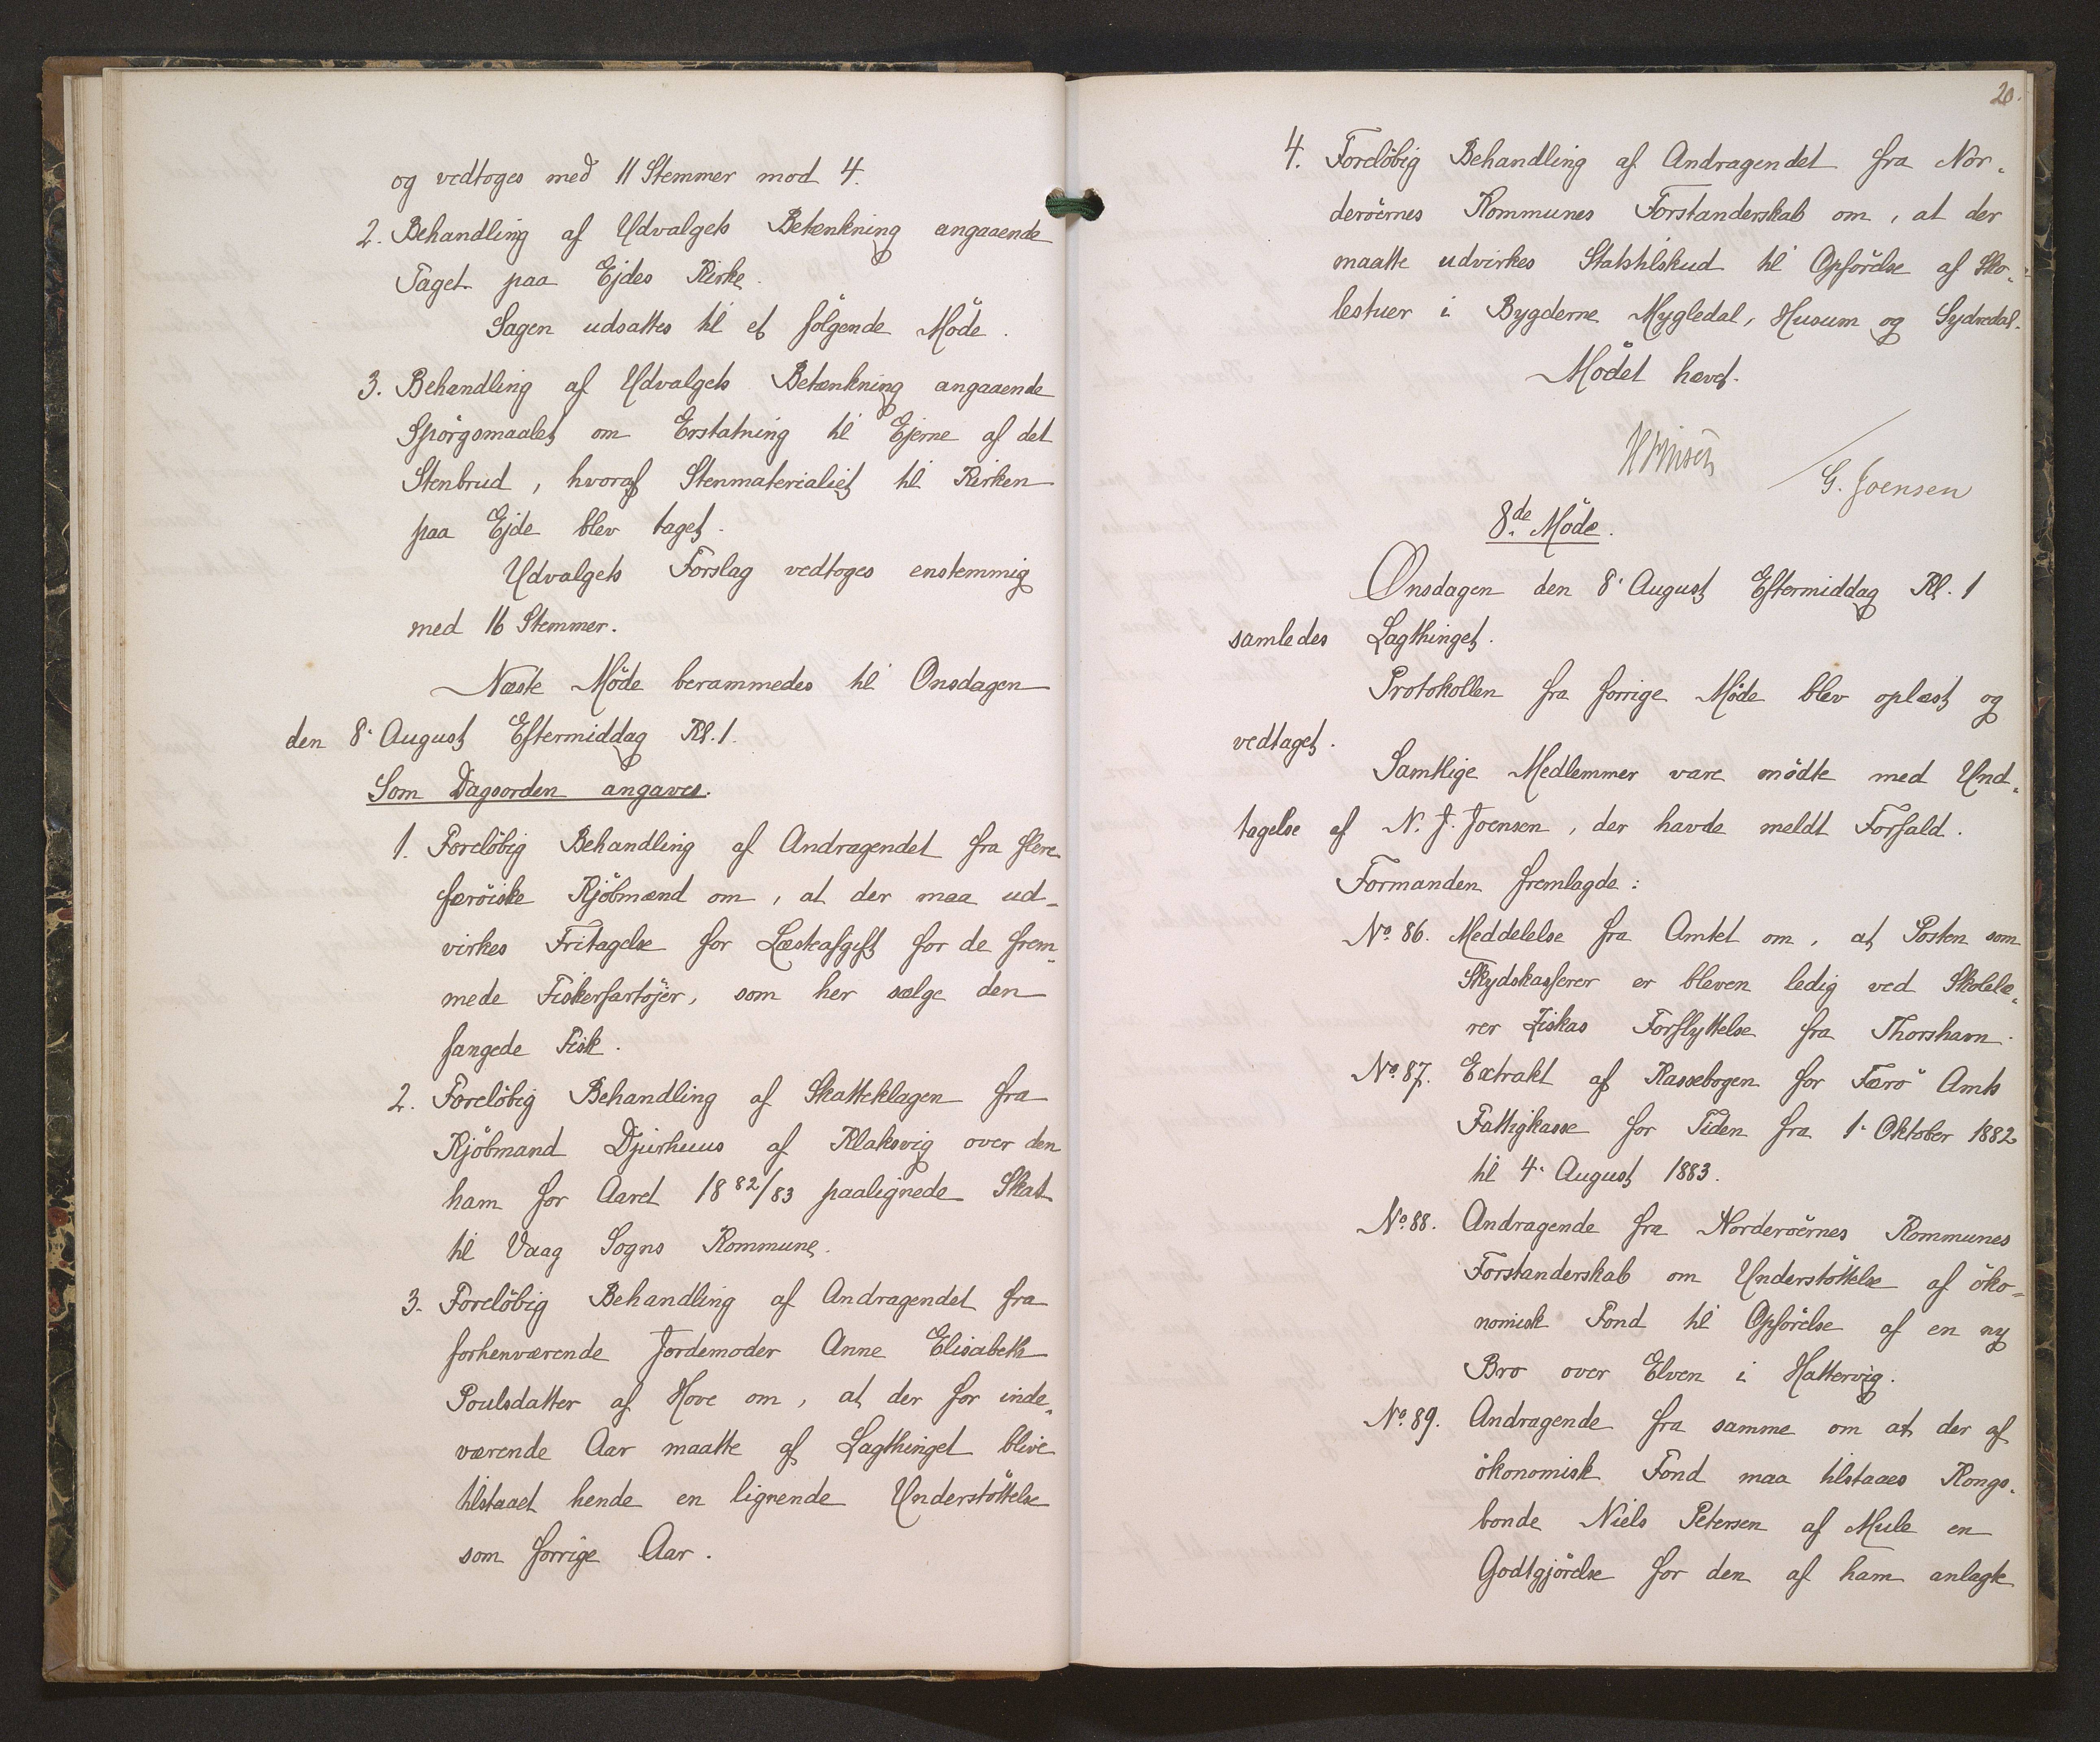 og vedtoges med 11 Stemmer mod 4.
2. Behandling af Udvalgets Betænkning angaaende
Taget paa Ejdes Kirke.
Sagen udsattes til et følgende Møde.
3. Behandling af Udvalgets Betænkning angaaende
Spørgsmaalet om Erstatning til Ejerne af det
Stenbrud, hvoraf Stenmaterialiet til Kirken
paa Ejde blev taget.
Udvalgets Forslag vedtoges enstemmig
med 16 Stemmer.
Næste Møde berammedes til Onsdagen
den 8. August Eftermiddag Kl. 1.
Som Dagsorden angaves.
1. Foreløbig Behandling af Andragendet fra flere
færøiske Kjøbmænd om, at der maa ud-
virkes Fritagelse for Læsteafgift for de frem-
mede Fiskerfartøjer, som her sælge den
fangede Fisk.
2. Foreløbig Behandling af Skatteklagen fra
Kjøbmand Djurhuus af Klaksvig over den
ham for Aaret 1882/83 paalignede Skat
til Vaag Sogns Kommune.
3. Foreløbig Behandling af Andragendet fra
forhenværende Jordemoder Anne Elisabeth
Poulsdatter af Hove om, at der for inde-
værende Aar maatte af Lagthinget blive
tilstaaet hende en lignende Understøttelse
som forrige Aar.
20.
4. Foreløbig Behandling af Andragendet fra Nor-
derøernes Kommunes Forstanderskab om, at der
maatte udvirkes Statstilskud til Opførelse af Sko-
lestuer i Bygderne Mygledal, Husum og Sydredal.
Mødet hævet.
G. Joensen
8de Møde.
Onsdagen den 8. August Eftermiddag Kl. 1
samledes Lagthinget.
Protokollen fra forrige Møde blev oplæst og
vedtaget.
Samtlige Medlemmer vare mødte med Und-
tagelse af N. J. Joensen, der havde meldt Forfald.
Formanden fremlagde:
No. 86. Meddelelse fra Amtet om, at Posten som
Skydskasserer er bleven ledig ved Skolelæ-
rer Ziskas Forflyttelse fra Thorshavn.
No. 87. Extrakt af Kassebogen for Færø Amts
Fattigkasse for Tiden fra 1. Oktober 1882
til 4. August 1883.
No. 88. Andragende fra Norderøernes Kommunes
Forstanderskab om Understøttelse af øko-
nomisk Fond til Opførelse af en ny
Bro over Elven i Hattervig.
No. 89. Andragende fra samme om at der af
økonomisk Fond maa tilstaaes Kongs-
bonde Niels Petersen af Mule en
Godtgjørelse for den af ham anlagte